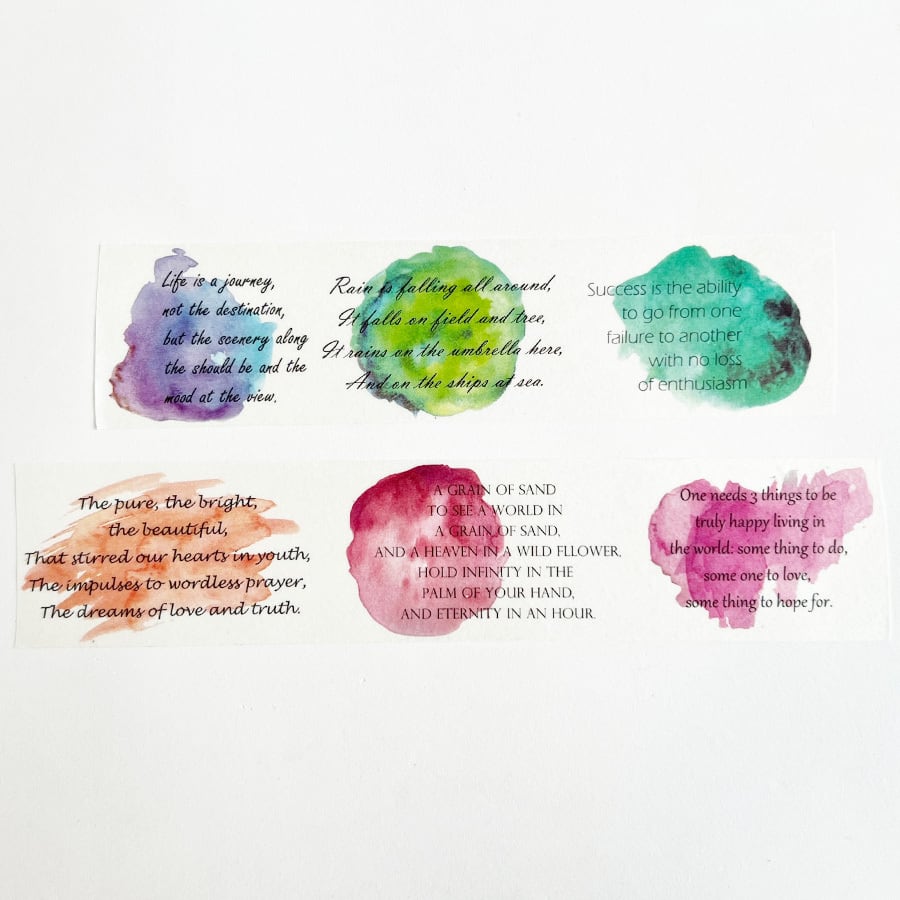 Life is a journey,
not the destination,
but the scenery along
the should be and the
mood at the view.
Rain is falling all around,
It falls on field and tree,
It rains on the umbrella here,
And on the ships at sea.
Success is the ability
to go from one
failure to another
with no loss
of enthusiasm
The pure, the bright,
the beautiful,
That stirred our hearts in youth,
The impulses to wordless prayer,
The dreams of love and truth.
A GRAIN OF SAND
TO SEE A WORLD IN
A GRAIN OF SAND,
AND A HEAVEN IN A WILD FLLOWER,
HOLD INFINITY IN THE
PALM OF YOUR HAND,
AND ETERNITY IN AN HOUR.
One needs 3 things to be
truly happy living in
the world: some thing to do,
some one to love,
some thing to hope for.